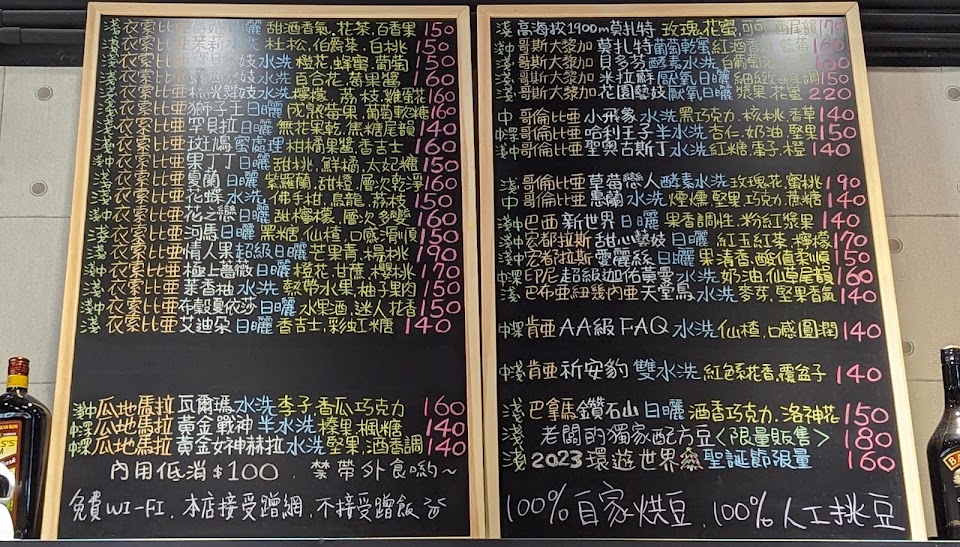 淺衣索比亞 日曬 甜酒香氣.花茶.百香果 150
衣索比亞茉莉水洗 杜松,伯爵茶,白桃 150
衣索比亞 藝妓水洗 橙花,蜂蜜,葡萄 150
衣索比亞 藝妓水洗 百合花,莓果醬 160
淺衣索比亞桃光藝妓水洗 檸檬,荔枝,雞蛋花 160
淺衣索比亞獅子王日曬 成熟莓果,葡萄軟糖 160
淺中衣索比亞罕貝拉日曬 無花果乾,焦糖尾韻 140
淺衣索比亞斑鳩蜜處理 柑橘果醬,香吉士 160
淺中衣索比亞果丁丁日曬 甜桃,鮮橘,太妃糖 150
淺衣索比亞夏蘭日曬 紫羅蘭,甜橙,層次乾淨 160
淺衣索比亞花蝶水洗 佛手柑,烏龍,荔枝 150
淺中衣索比亞花之戀日曬 甜檸檬,層次多變 160
淺衣索比亞河馬日曬 黑糖,仙楂,口感滑順 150
淺衣索比亞情人果超級日曬 芒果青,楊桃 190
淺中衣索比亞極上薔薇日曬 橙花,甘蔗,櫻桃 170
淺衣索比亞葉香柚水洗 熱帶水果,柚子果肉 150
淺中衣索比亞布穀夏依莎日曬 水果酒,迷人花香 150
淺衣索比亞艾迪朵日曬 香吉士,彩虹糖 140
淺中瓜地馬拉瓦爾瑪水洗 李子.香瓜巧克力 160
中深瓜地馬拉黃金戰神半水洗 榛果,楓糖 140
中深瓜地馬拉黃金女神赫拉水洗 堅果,酒香調 140
內用低消$100 . 禁帶外食喲~
免費WI-FI.本店接受蹭網.不接受蹭飯
淺高海拔1900m莫扎特 玫瑰,花蜜,可可酒尾韻 190
淺中哥斯大黎加 莫扎特葡萄乾蜜 紅酒香 160
淺哥斯大黎加 貝多芬酵素水洗 白葡萄 160
淺哥斯大黎加 米拉蘇厭氧日曬 細緻 調 150
淺哥斯大黎加 花園藝妓厭氧日曬 漿果,花蜜 220
中 哥倫比亞 小飛象 水洗 黑巧克力.核桃.香草 140
中深哥倫比亞 哈利王子半水洗 杏仁.奶油.堅果 150
淺中哥倫比亞 聖奧古斯丁水洗 紅糖.棗子.橙 140
淺哥倫比亞 草莓戀人酵素水洗 玫瑰.花,蜜桃 190
中哥倫比亞 惠蘭水洗 煙燻.堅果巧克力.蔗糖 140
淺中巴西 新世界 日曬 果香調性.粉紅漿果 140
淺中宏都拉斯 甜心藝妓日曬 紅玉紅茶.檸檬 170
淺中宏都拉斯 愛麗絲日曬 果清香.酸值柔順 150
中深印尼超級迦佑黃曼水洗 奶油.仙草尾韻 160
淺巴布亞紐幾內亞天堂鳥水洗 麥芽.堅果香氣 140
中深 肯亞AA級FAQ水洗 仙楂,口感圓潤 140
中淺 肯亞祈安豹 雙水洗 紅色系花香.覆盆子 140
淺 巴拿馬鑽石山 日曬 酒香巧克力.洛神花 150
淺 老闆的獨家配方豆<限量販售> 180
淺 2023環遊世界 聖誕節限量 160
100%自家烘豆.100%人工挑豆